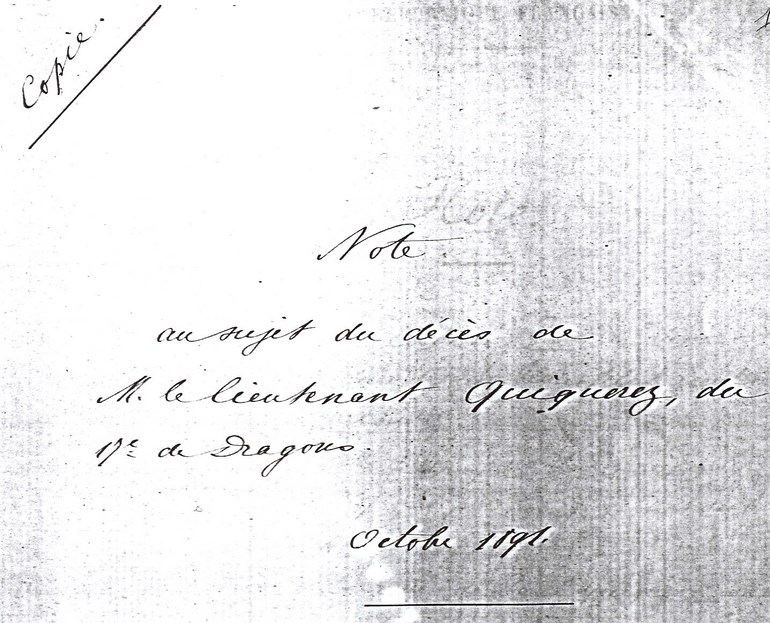 Copie.
1
Note
au sujet du décès de
M. le lieutenant Quiquerez, du
17e de Dragons.
Octobre 1891.